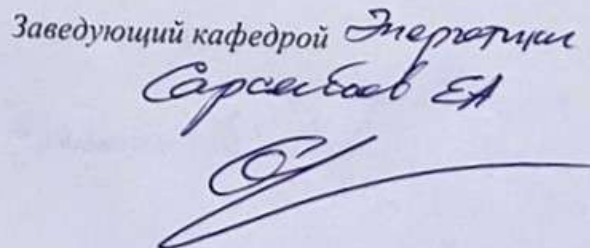 Заведующий кафедрой Энергетики
Сарсенбаев ЕА